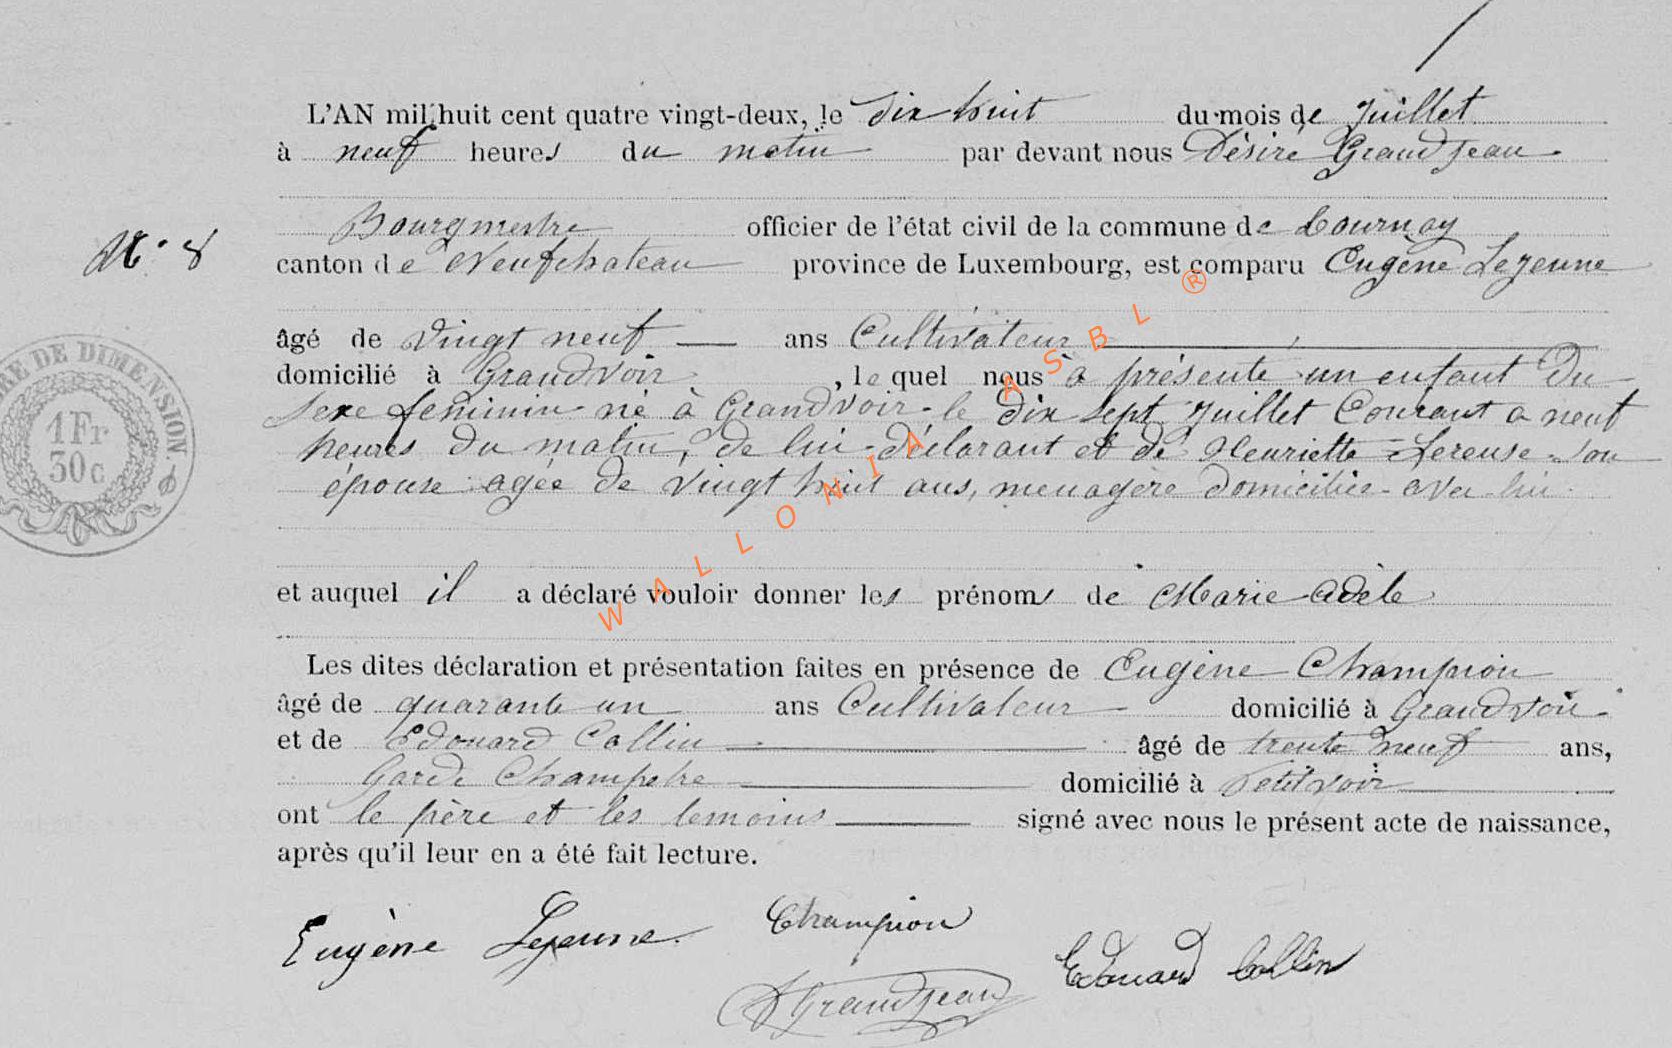 L'AN mil huit cent quatre vingt-deux, le dix huit du mois de Juillet
à neuf heures du matin par devant nous Désiré Grandjean
Bourgmestre officier de l'état civil de la commune de Tournay
N° 8
canton de Neufchateau province de Luxembourg, est comparu Eugène Lejeune
âgé de vingt neuf ans Cultivateur
domicilié à Grandvoir, lequel nous à présenté un enfant du
sexe feminin né à Grandvoir le dix sept Juillet Courant a neuf
heures du matin, de lui déclarant et de Henriette son
épouse agée de vingt huit ans, menagère domiciliée avec lui
et auquel il a déclaré vouloir donner les prénoms de Marie Adèle
Les dites déclaration et présentation faites en présence de Eugène Champion
âgé de quarante un ans Cultivateur domicilié à Grandvoir
et de Edouard Collin âgé de trente neuf ans,
Garde Champetre domicilié à Petitvoir
ont le père et les temoins signé avec nous le présent acte de naissance,
après qu'il leur en a été fait lecture.
Eugène Lejeune. Champion
Edouard Collin
D Grandjean
TIMBRE DE DIMENSION
1 Fr
30 c
WALLONIA ASBL ®